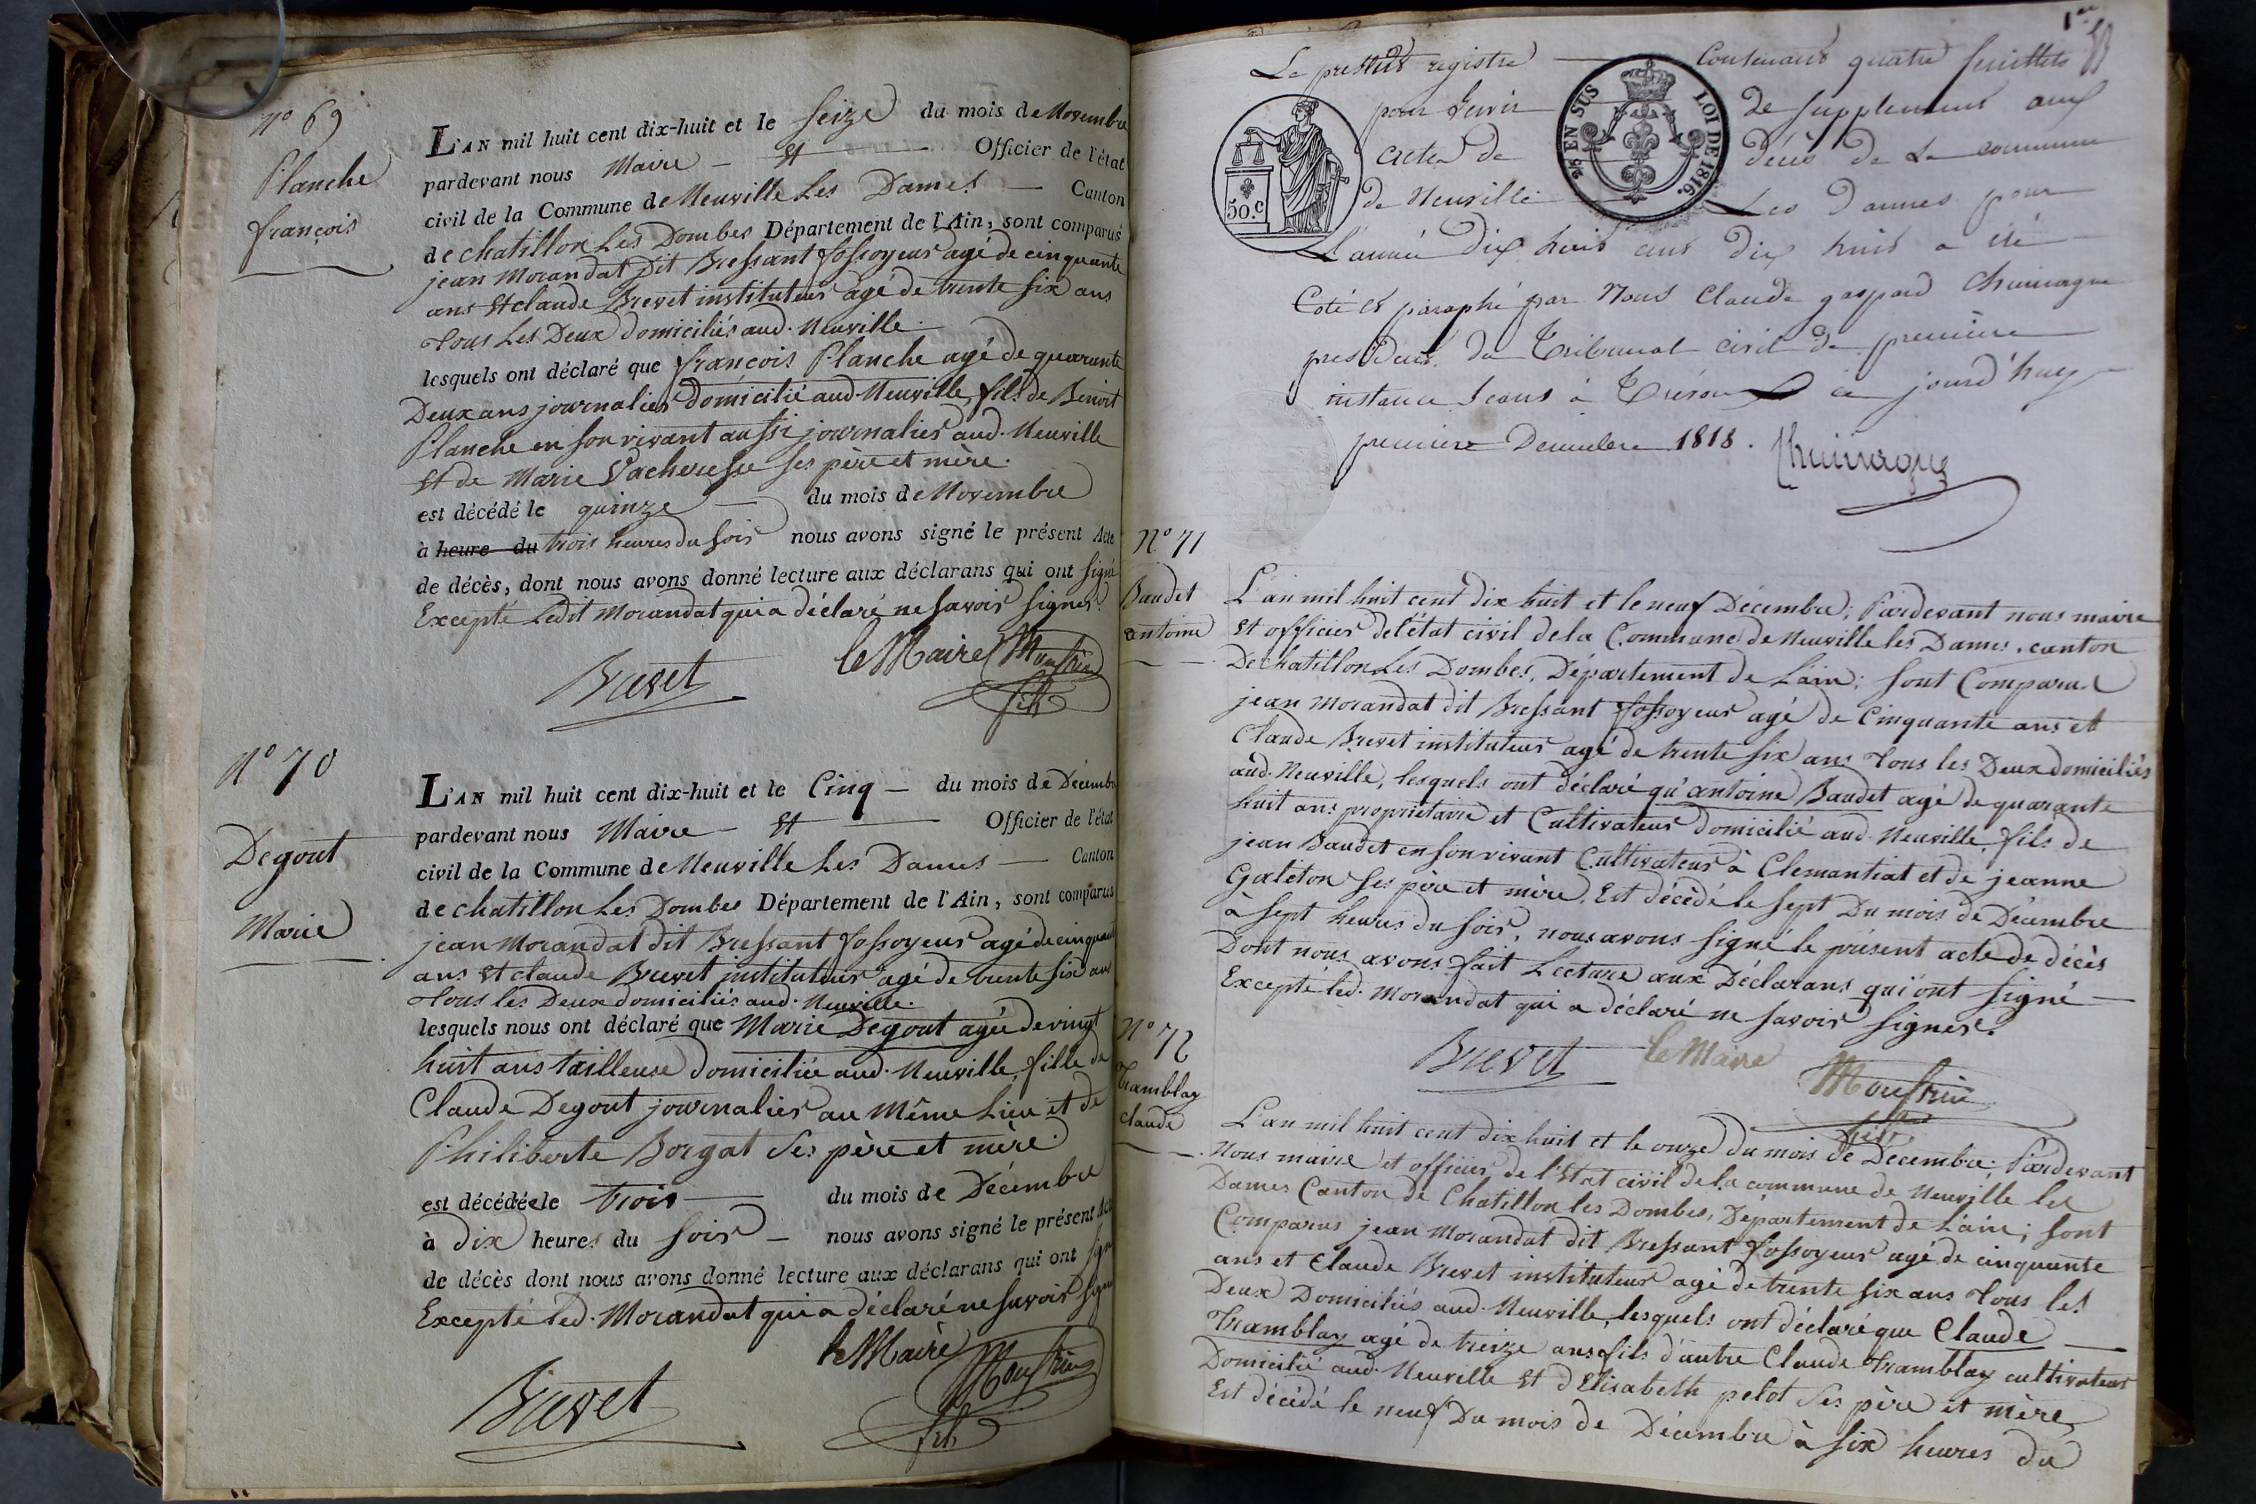 N° 69
Planche
françois
L'AN mil huit cent dix-huit et le seize du mois de Novembre
pardevant nous Maire — Et — Officier de l'état
civil de la Commune de Neuville Les Dames — Canton
de chatillon Les Dombes Département de l'Ain, sont comparus
jean Morandat dit Bressant fossoyeur agé de cinquante
ans Et claude Brevet instituteur agé de trente six ans
tous Les Deux domiciliés aud. Neuville.
lesquels ont déclaré que françois Planche agé de quarante
Deux ans journalier domicilié aud. Neuville, fils de Benoit
Planche en son vivant aussi journalier aud. Neuville
Et de Marie Vacheresse ses père et mère.
est décédé le quinze — du mois de Novembre
à heure du trois heures du soir nous avons signé le présent Acte
de décès, dont nous avons donné lecture aux déclarans qui ont signé
Excepté Ledit Morandat qui a déclaré ne savoir signer.
Brevet le Maire
fils
N° 70
Degout
Marie
L'AN mil huit cent dix-huit et le Cinq — du mois de Décembre
pardevant nous Maire — Et — Officier de l'état
civil de la Commune de Neuville Les Dames — Canton
de chatillon Les Dombes Département de l'Ain, sont comparus
jean Morandat dit Bressant fossoyeur agé de cinquante
ans Et claude Brevet instituteur agé de trente six ans
tous les Deux domiciliés aud. Neuville.
lesquels nous ont déclaré que Marie Degout agée de vingt
huit ans tailleuse domiciliée aud. Neuville, fille de
Claude Degout journalier au Même Lieu et de
Philiberte Borgat Ses père et mère.
est décédée le trois — du mois de Décembre
à dix heures du soir — nous avons signé le présent Acte
de décès dont nous avons donné lecture aux déclarans qui ont signé
Excepté led. Morandat qui a déclaré ne savoir signer
le Maire
Brevet
fils
1er
Le present registre — Contenant quatre feuillets
pour servir — de supplement aux
actes de — décès de la commune
de Neuville — Les Dames pour
L'année dix huit cent dix huit a été
Coté et paraphé par Nous Claude gaspard Chuinague
president du Tribunal civil de première
instance séant à Trévoux ce jourd'huy
premier Decembre 1818. Chuinague
50.c
25 EN SUS
LOI DE 1816.
N° 71
Baudet
antoine
L'an mil huit cent dix huit et le neuf Décembre; Pardevant nous maire
Et officier de l'état civil de la Commune de Neuville les Dames, canton
De chatillon Les Dombes, Département de L'ain; sont Comparus
jean Morandat dit Bressant fossoyeur agé de Cinquante ans et
Claude Brevet instituteur agé de trente six ans tous les Deux domiciliés
aud. Neuville, lesquels ont déclaré qu'antoine Baudet agé de quarante
huit ans propriétaire et Cultivateur domicilié aud. Neuville fils de
jean Baudet en son vivant Cultivateur à Clemantiat et de jeanne
Galéton ses père et mère, Est décédé le sept Du mois de Décembre
à sept heures du soir, nous avons signé le présent acte de décès
Dont nous avons fait Lecture aux Déclarans qui ont signé —
Excepté led. Morandat qui a déclaré ne savoir signer.
Brevet le Maire
fils
N° 72
Tramblay
claude
L'an mil huit cent dix huit et le onze du mois de Décembre. Pardevant
Nous maire et officier de l'Etat civil de la commune de Neuville les
Dames Canton de Chatillon les Dombes, Département de L'ain; sont
Comparus jean Morandat dit Bressant fossoyeur agé de cinquante
ans et Claude Brevet instituteur agé de trente six ans tous les
Deux Domiciliés aud. Neuville, lesquels ont déclaré que Claude —
Tramblay agé de treize ans fils d'autre Claude Tramblay cultivateur
Domicilié aud. Neuville Et d'Elisabeth pelot Ses père et mère,
Est décédé le neuf Du mois de Décembre à six heures du